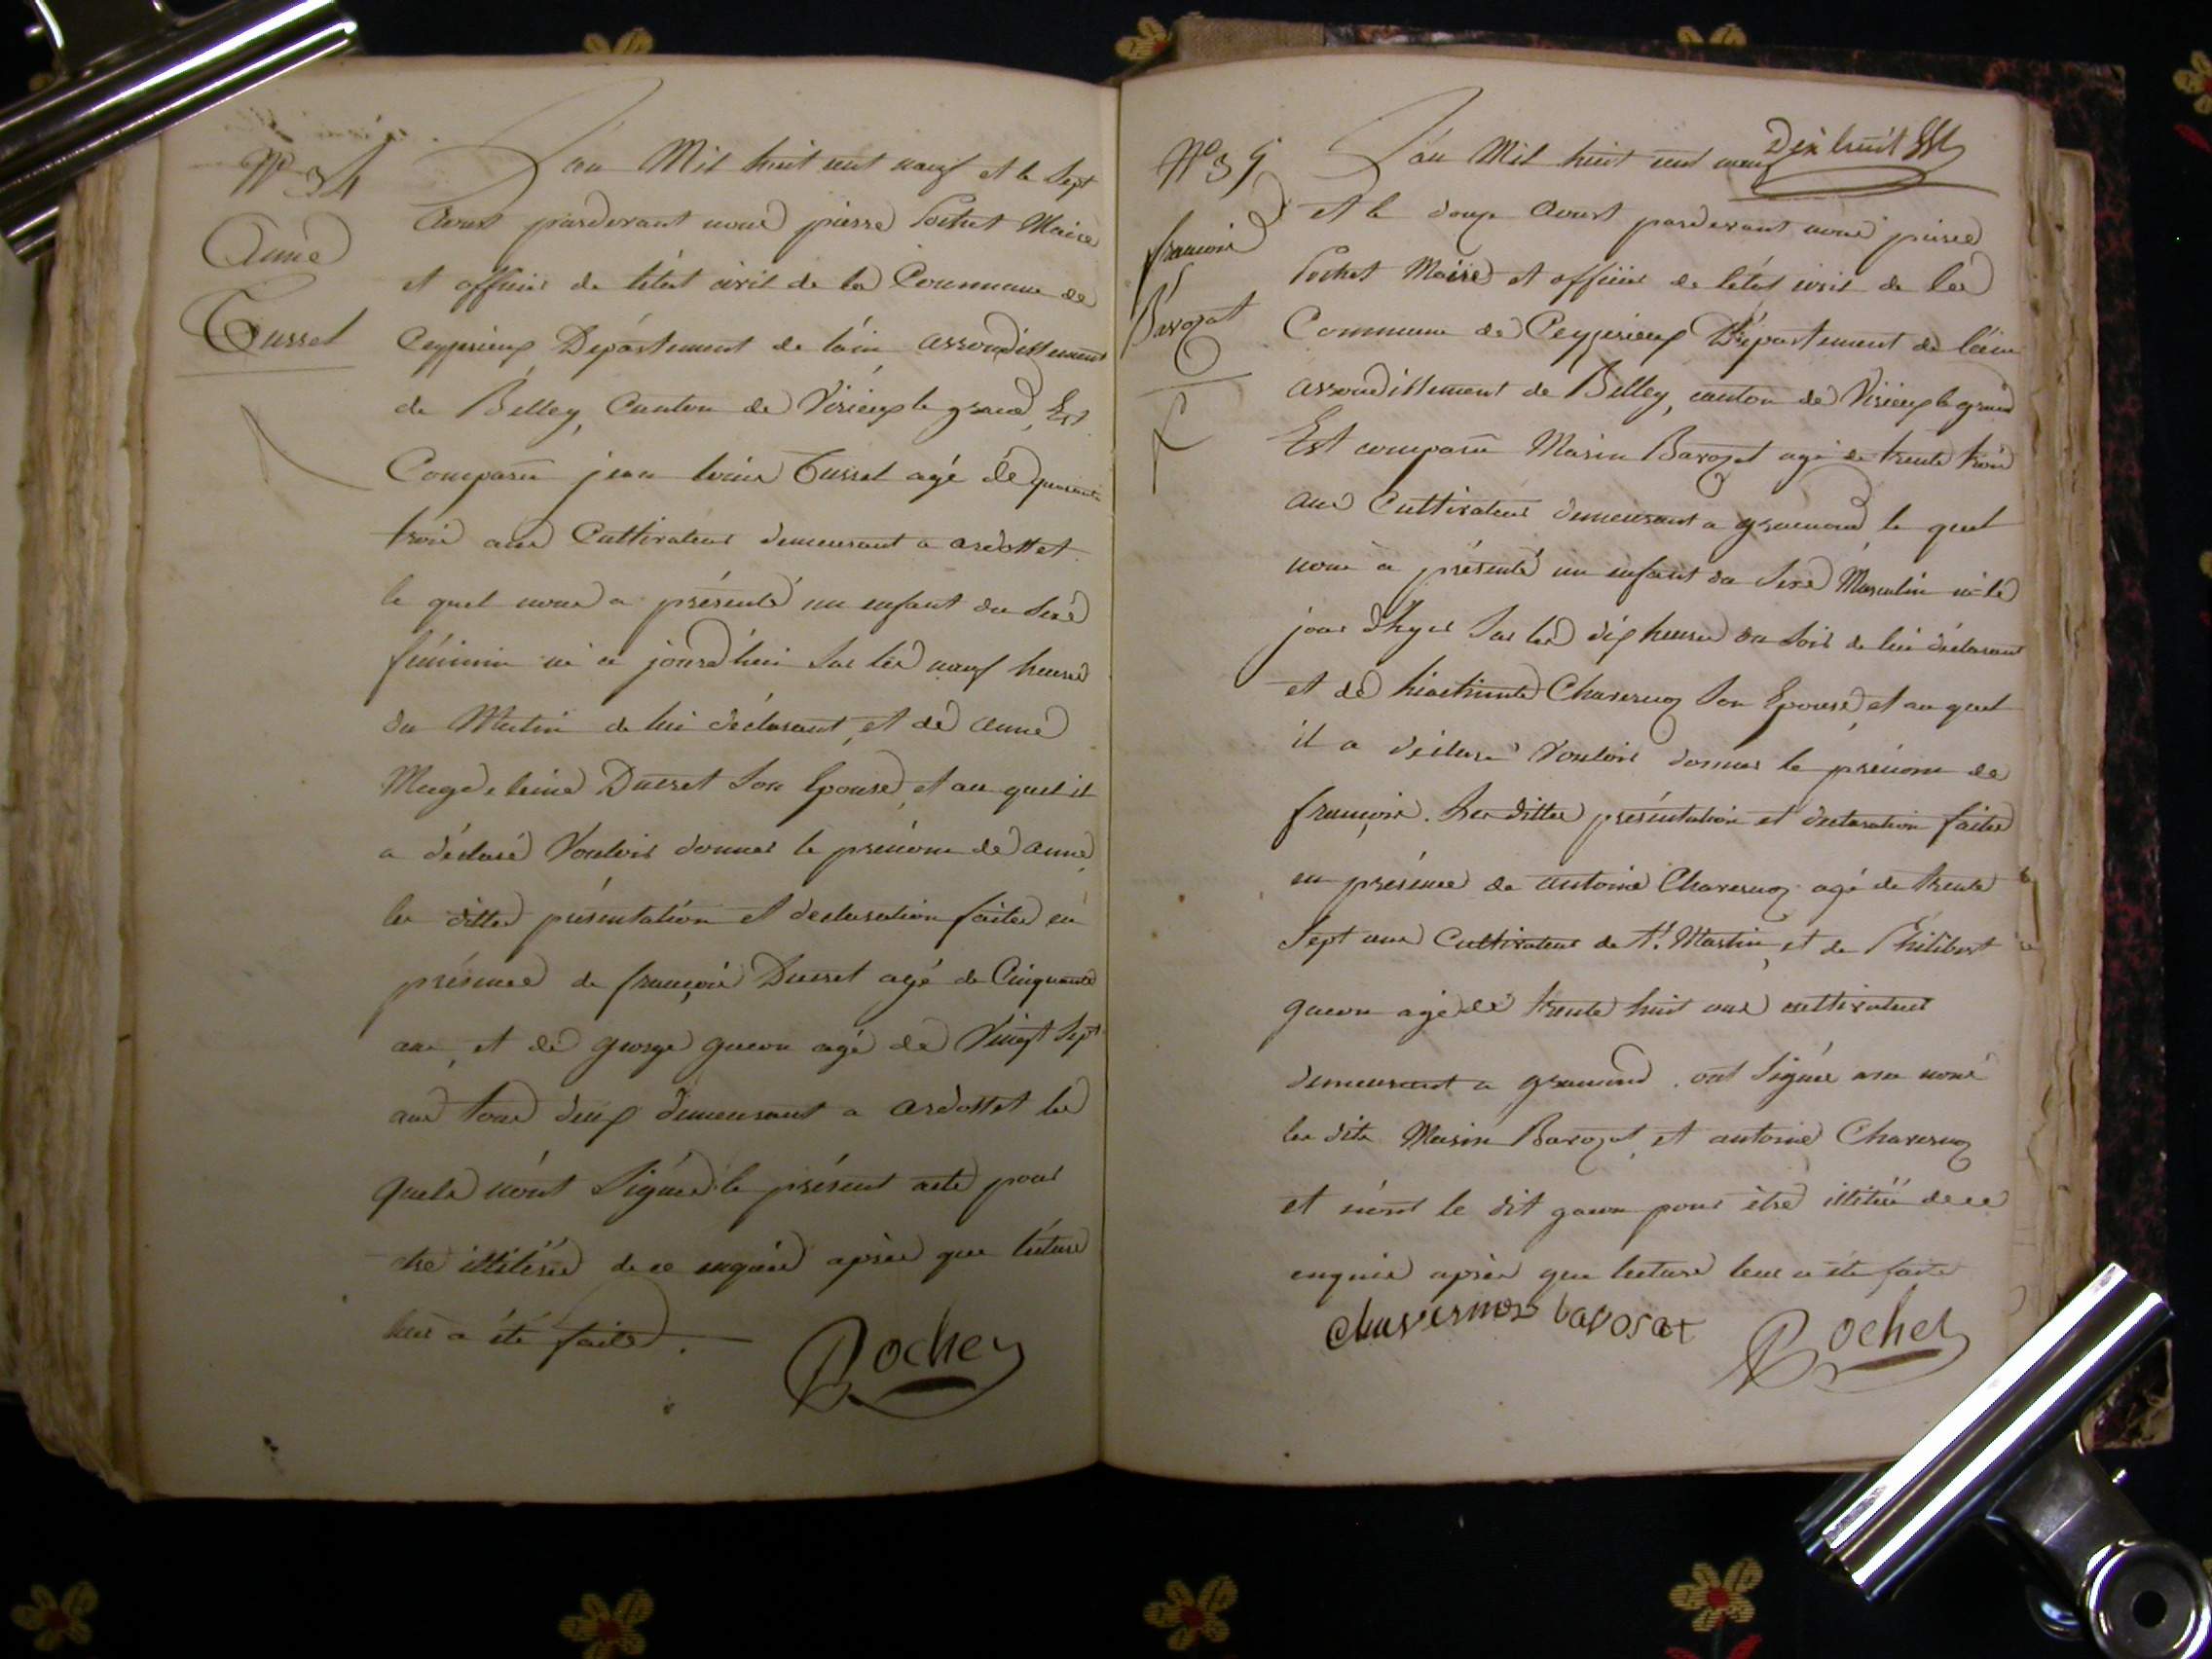 N.o 34
Anne
Tusset
L'an Mil huit cent neuf et le Sept
Aoust pardevant nous pierre Pochet Maire
et officier de létat civil de la Commune de
Ceyzerieux Département de láin arrondissement
de Belley, Canton de Virieux le grand, Est
Comparu jean louis Tusset agé de quarante
trois ans Cultivateur demeurant a ardosset
le quel nous a présenté un enfant du Sexe
féminin né a jourd'hui Sur les neuf heures
du Matin de lui déclarant, et de anne
Magdeleine Ducret Son Epouse, et au quel il
a déclaré Vouloir donner le prénom de anne,
les dittes présentation et declaration faites en
présence de françois Ducret agé de Cinquante
ans, et de george gueon agé de Vingt Sept
ans tous deux demeurant a ardosset les
quels n'ont Signés le présent acte pour
etre illiterés de ce enquis après que lecture
leur a été faite.
Pochet
Dix huit
N.o 35
françois
Barozat
L'an Mil huit cent neuf
et le douze Aoust pardevant nous pierre
Pochet Maire et officier de létat civil de la
Commune de Ceyzerieux Département de láin
arrondissement de Belley, canton de Virieux le grand
Est comparu Marin Barozat agé de trente trois
ans Cultivateur demeurant a gramond, le quel
nous a présenté un enfant du Sexe Masculin né le
jour d'hyer Sur les dix heures du Soir de lui déclarant
et de hiacinthe Chavernoz Son Epouse, et au quel
il a déclaré Vouloir donner le prénom de
françois. Les dittes présentation et declaration faites
en présence de antoine Chavernoz agé de trente
Sept ans Cultivateur de St. Martin, et de Philibert
gueon agé de trente huit ans cultivateur
demeurant a gramond. ont Signés avec nous
les dits Marin Barozat, et antoine Chavernoz
et n'ont le dit gueon pour être illiteré de ce
enquis après que lecture leur a été faite
Chavernoz barosat Pochet